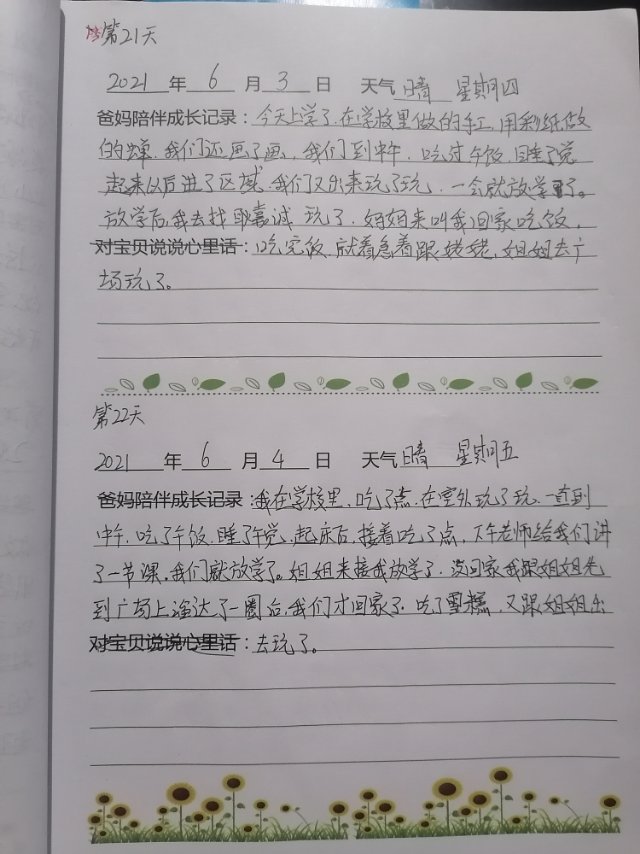 第21天
2021 年 6 月 3 日 天气 晴 星期四
爸妈陪伴成长记录：今天上学了，在学校里做的手工，用彩纸做
的蝉，我们还画了画，我们到中午，吃过午饭，睡了觉
起来以后进了区域，我们又出来玩了玩，一会就放学了。
放学后，我去找耶嘉诚玩了，妈妈来叫我回家吃饭，
对宝贝说说心里话：吃完饭，就着急着跟姥姥，姐姐去广
场玩了。
第22天
2021 年 6 月 4 日 天气 晴 星期五
爸妈陪伴成长记录：我在学校里，吃了点，在室外玩了玩，一直到
中午，吃了午饭，睡了午觉，起床后，接着吃了点，下午老师给我们讲
了一节课，我们就放学了。姐姐来接我放学了，没回家我跟姐姐先
到广场上溜达了一圈后，我们才回家了，吃了雪糕，又跟姐姐出
对宝贝说说心里话：去玩了。